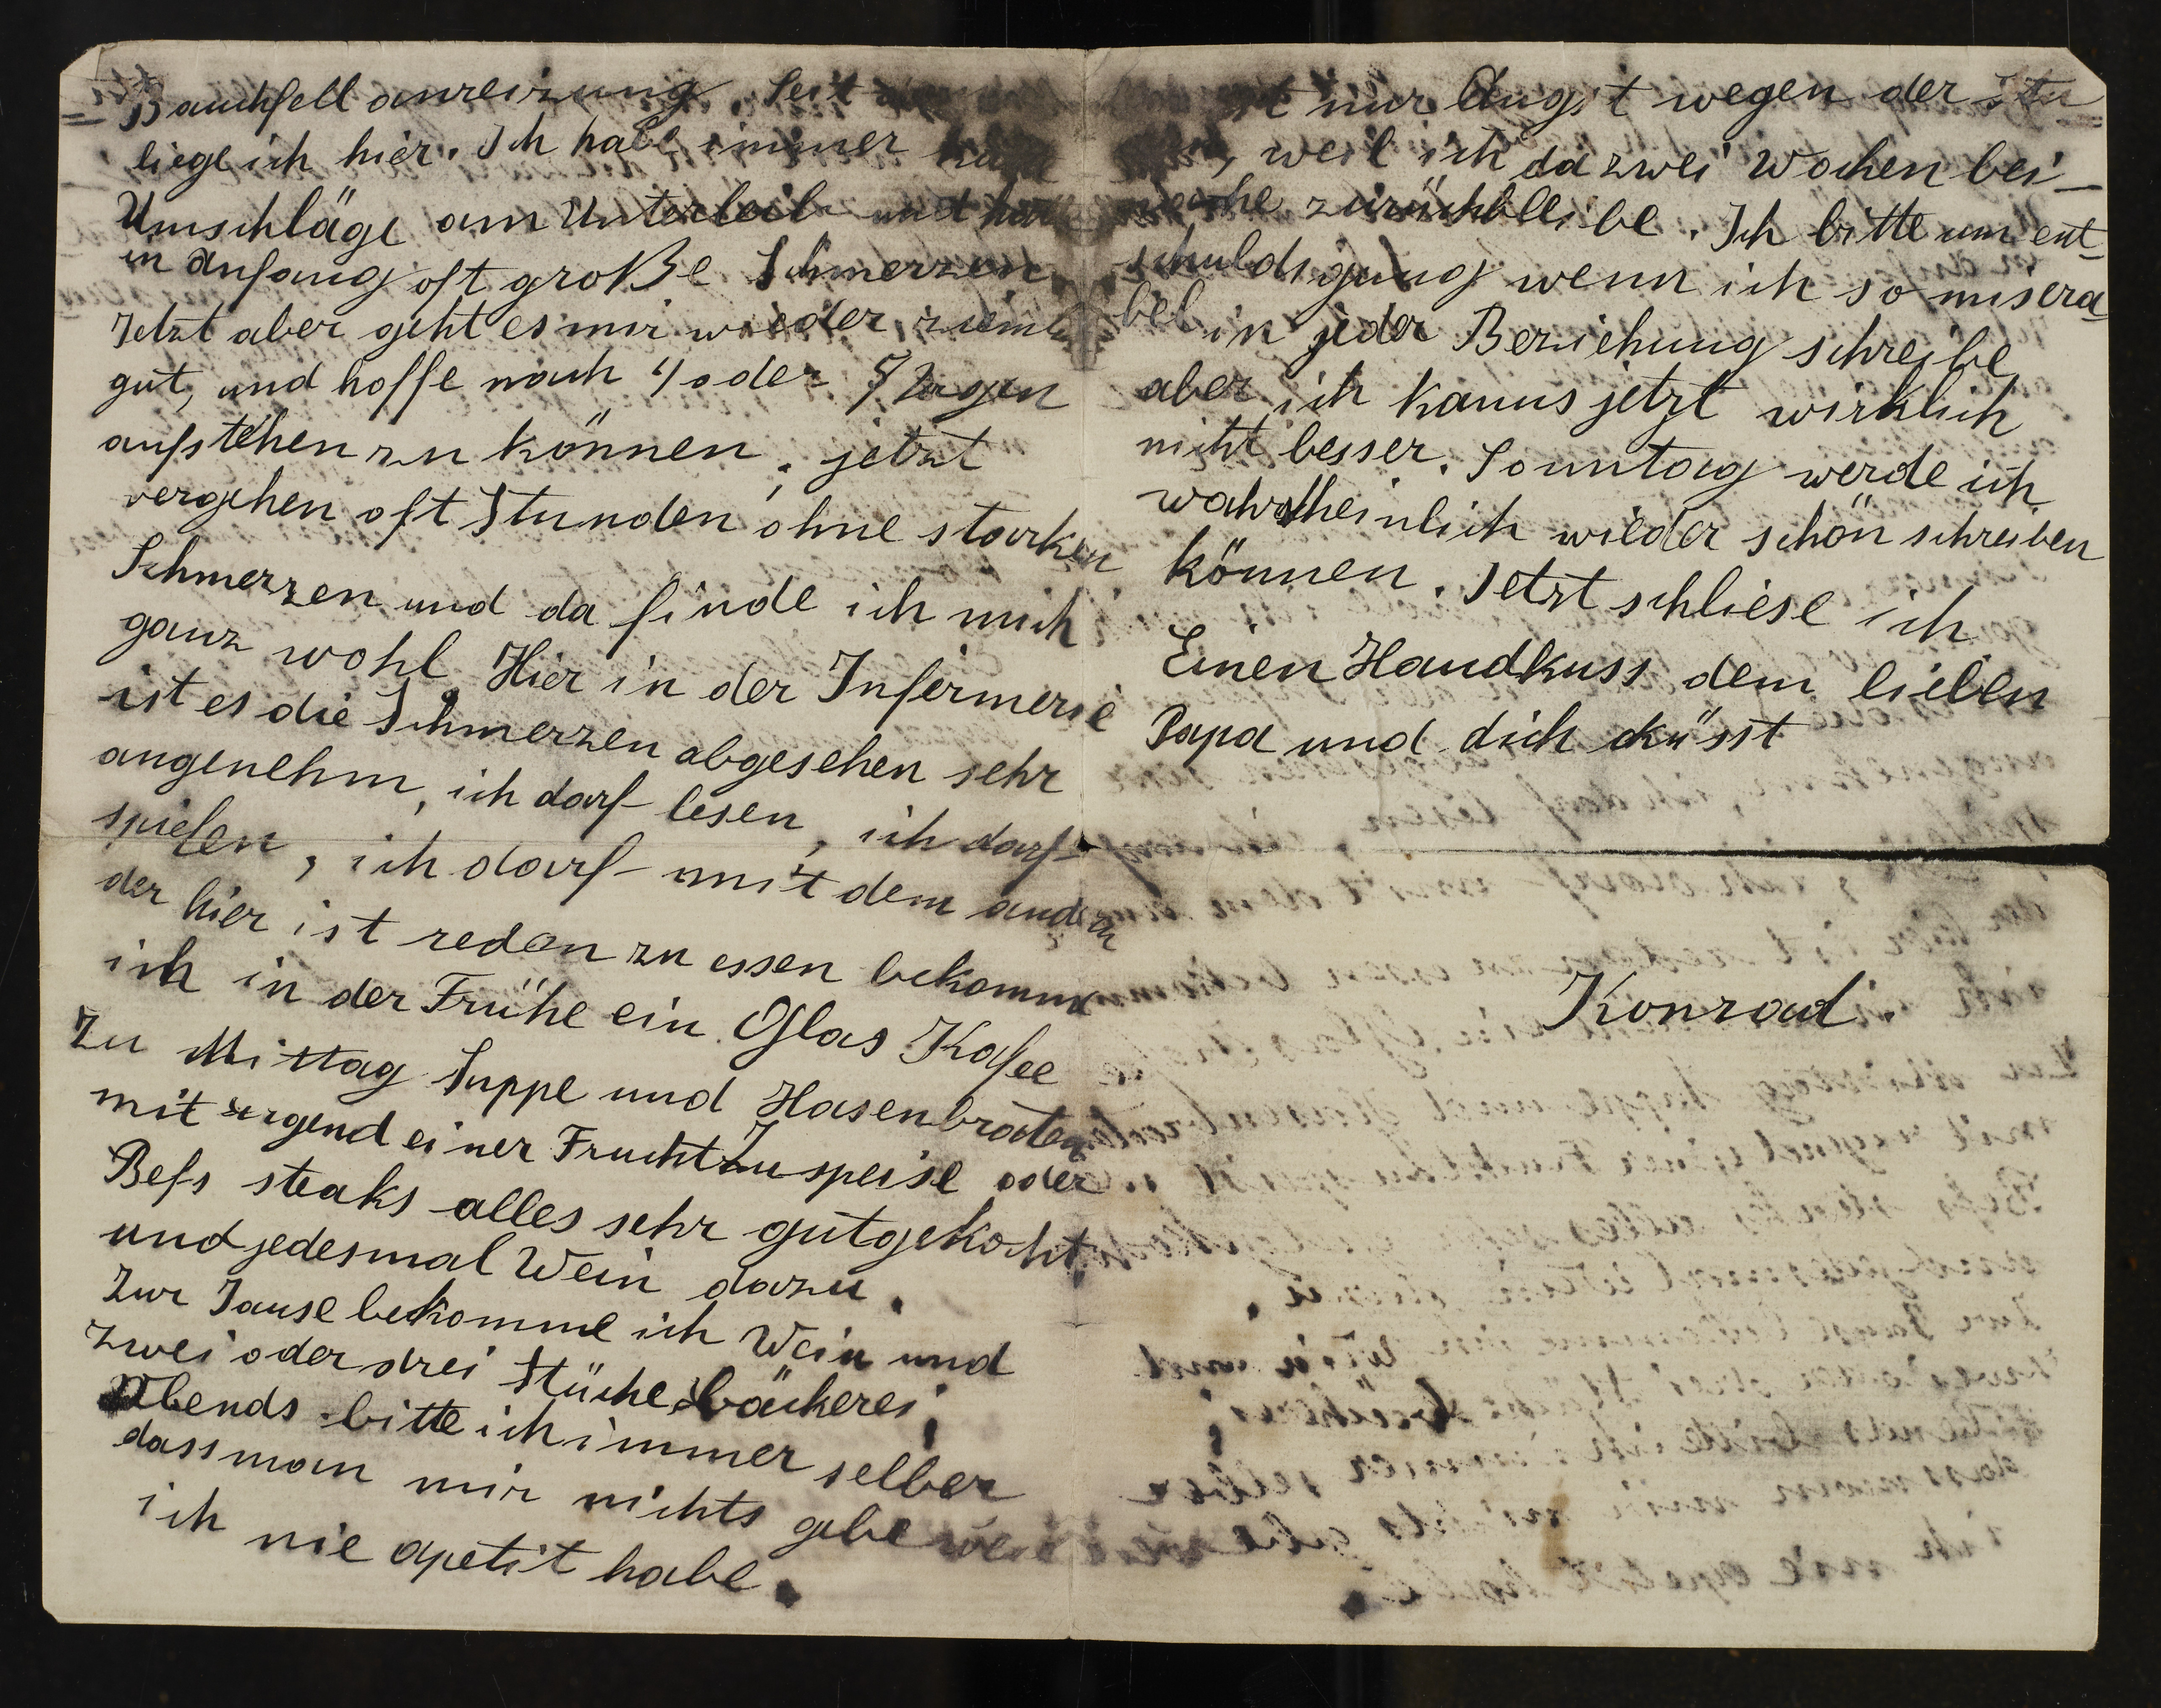 Bauchfellanreizung. Seit
liege ich hier. Ich habe immer
Umschläge am Unterleib und
in Anfang oft große Schmerzen.
Jetzt aber geht es mir wieder zieml
gut, und hoffe nach 4 oder 5 Tagen
aufstehen zu können, jetzt
vergehen oft Stunden ohne starken
Schmerzen und da finde ich mich
ganz wohl. Hier in der Infermerie
ist es die Schmerzen abgesehen sehr
angenehm, ich darf lesen, ich darf
spielen, ich darf mit dem andern
der hier ist reden zu essen bekomme
ich in der Frühe ein Glas Kafee
Zu Mittag Suppe und Hasenbraten
mit irgend einer FruchtZuspeise oder
Befs steaks alles sehr gutgekocht
und jedesmal Wein dazu.
Zur Jause bekomme ich Wein und
Zwei oder drei Stücke bäckerei,
Abends bitte ich immer selber
dass man mir nichts gebe weil
ich nie apetit habe.
nur Angst wegen der
weil ich da zwei Wochen bei-
nahe zurückbleibe. Ich bitte um ent-
schuldigung wenn ich so misera-
bel in jeder Beziehung schreibe
aber ich kanns jetzt wirklich
nicht besser. Sonntag werde ich
wahrscheinlich wieder schön schreiben
können. Jetzt schliese ich
Einen Handkuss dem lieben
Papa und dich küsst
Konrad.